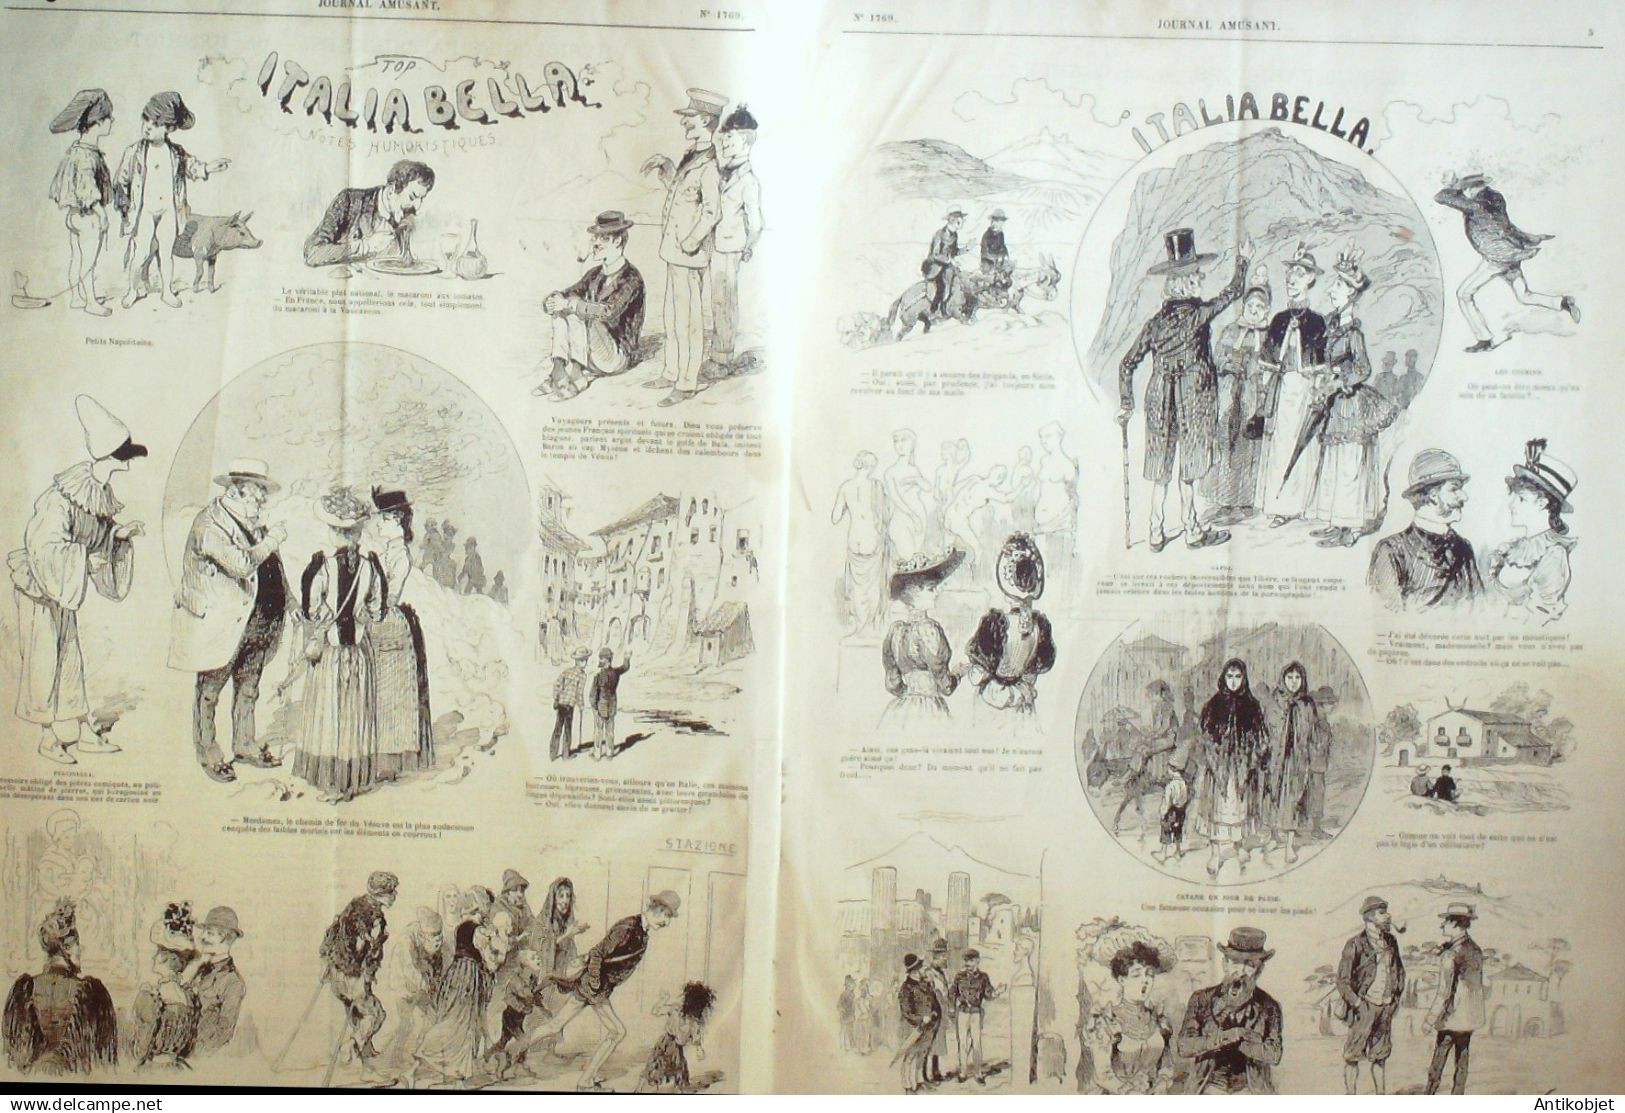 JOURNAL AMUSANT.
Nº 1769.
TOP
ITALIA BELLA
NOTES HUMORISTIQUES
Petits Napolitains.
Le véritable plat national, le macaroni aux tomates.
— En France, nous appellerions cela, tout simplement,
du macaroni à la Vaucanson.
Voyageurs présents et futurs, Dieu vous préserve
des jeunes Français spirituels qui se croient obligés de tout
blaguer, parlent argot devant le golfe de Baïa, imitent
Baron au cap Mysène et lâchent des calembours dans
le temple de Vénus!
— Mesdames, le chemin de fer du Vésuve est la plus audacieuse
conquête des faibles mortels sur les éléments en courroux!
— Où trouveriez-vous, ailleurs qu'en Italie, ces maisons
Sont-elles assez pittoresques?
— Oui, elles donnent envie de se gratter!
STAZIONE
Nº 1769.
JOURNAL AMUSANT.
5
ITALIA BELLA.
— Il paraît qu'il y a encore des brigands, en Sicile.
— Oui; aussi, par prudence, j'ai toujours mon
revolver au fond de ma malle.
Où peut-on être mieux qu'au
sein de sa famille?...
— C'est sur ces rochers inaccessibles que Tibère, ce fougueux empe-
reur, se livrait à ces déportements sans nom qui l'ont rendu à
jamais célèbre dans les fastes honteux de la pornographie!
— J'ai été dévorée cette nuit par les moustiques!
— Vraiment, mademoiselle? mais vous n'avez pas
de piqûres.
— Oh! c'est dans des endroits où ça ne se voit pas...
— Ainsi, ces gens-là vivaient tout nus! Je n'aurais
guère aimé ça!
— Pourquoi donc? Du moment qu'il ne fait pas
froid...
— Comme on voit tout de suite que ce n'est
pas le logis d'un célibataire!
CATANE UN JOUR DE PLUIE.
Une fameuse occasion pour se laver les pieds!
Antikobjet